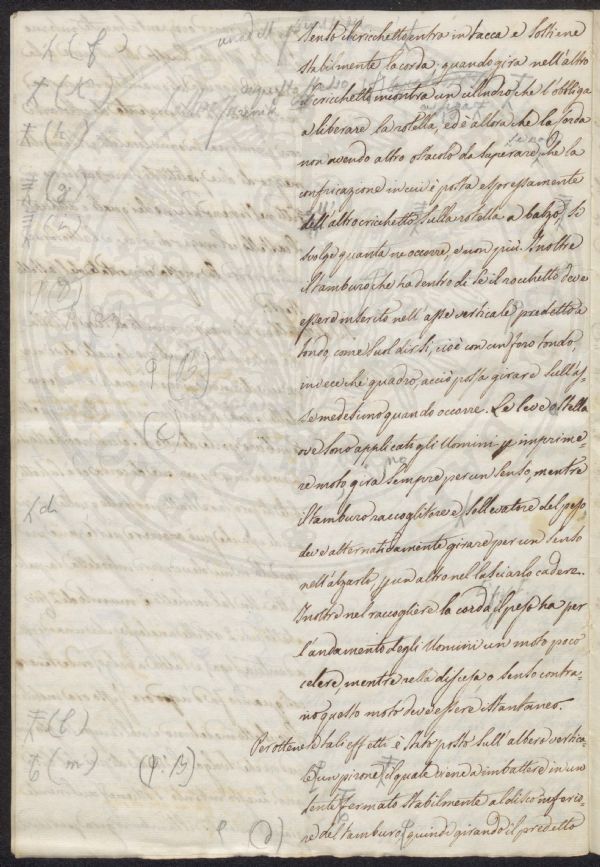 senso il cricchetto entra in tacca e sostiene
stabilmente la corda; quando gira nell'altro
il cricchetto incontra un cilindro che l'obbliga
a liberare la rotella, ed è allora che la corda
non avendo altro ostacolo da superare, che la
confricazione in cui è posta espressamente
dell'altro cricchetto sulla rotella a balzo, si
svolge quanta ne occorre, e non più. Inoltre
il tamburo che ha dentro di se il rocchetto deve
essere inserito nell'asse verticale predetto a
tondo, come suol dirsi, cioè con un foro tondo,
invece che quadro, acciò possa girare sull'as=
se medesimo quando occorre. Le leve o stella
ove sono applicati gli Uomini p imprime=
re moto gira sempre per un senso, mentre
il tamburo raccoglitore e sollevatore del peso
deve alternativamente girare per un senso
nell'alzarlo, p un altro nel lasciarlo cadere.
Inoltre nel raccogliere la corda il peso ha per
l'andamento degli Uomini un moto poco
celere, mentre nella discesa o senso contra=
rio questo moto deve essere istantaneo.
Per ottenere tali effetti è stato posto sull'albero vertica=
le un pirone il quale viene a imbattere in un
dente fermato stabilmente al disco inferio=
re del tamburo; quindi girando il predetto